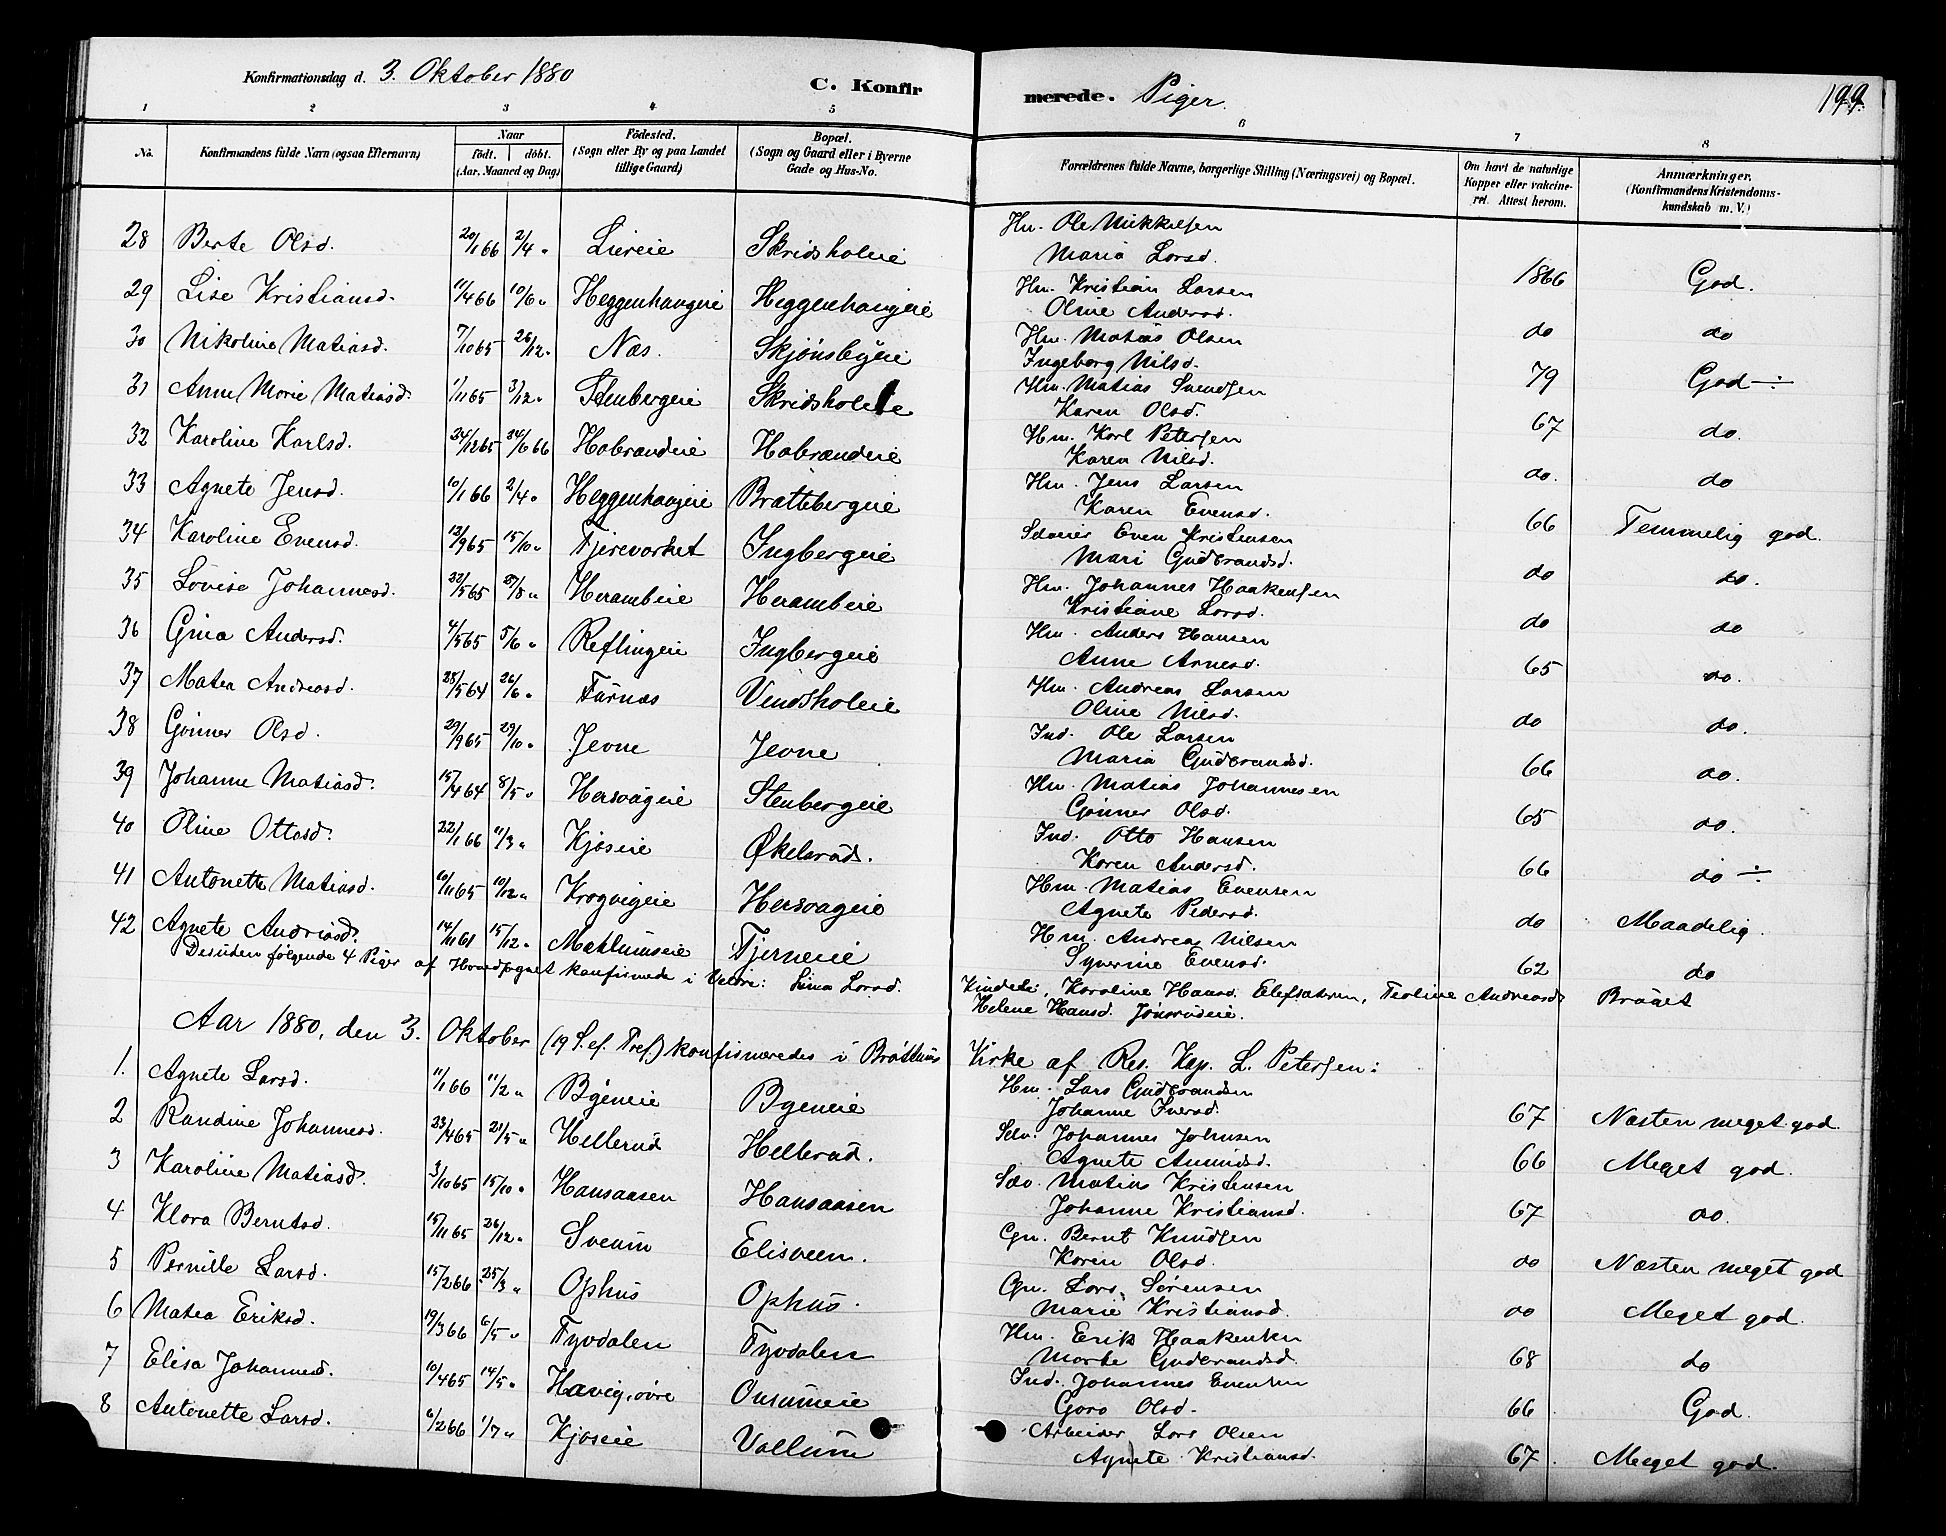 Konfirmationsdag d. 3. Oktober 1880 C. Konfir merede. Piger. 199.
1 2 3 4 5 6 7 8
No. Konfirmandens fulde Navn (ogsaa Efternavn) Naar født. døbt. (Aar, Maaned og Dag) Fødested. (Sogn eller By og paa Landet tillige Gaard) Bopæl. (Sogn og Gaard eller i Byerne Gade og Hus-No. Forældrenes fulde Navne, borgerlige Stilling (Næringsvei) og Bopæl. Om havt de naturlige Kopper eller vakcineret. Attest herom. Anmærkninger. (Konfirmandens Kristendomskundskab m. V.)
28 Berte Olsd. 20/1 66 2/4 " Liereie Skridsholeie Hm. Ole Mikkelsen
Maria Larsd. 1866 God.
29 Lise Kristiansd. 11/4 66 10/6 " Heggenhaugeie Heggenhaugeie Hm. Kristian Larsen
Oline Andersd. do do
30 Nikoline Matiasd. 7/10 65 26/12 " Næs. Skjønsbyeie Hm. Matias Olsen
Ingeborg Nilsd. 79 God ÷
31 Anne Marie Matiasd. 1/11 65 3/12 " Stenbergeie Skridshole Hm. Matias Svendsen
Karen Olsd. 67 do.
32 Karoline Karlsd. 24/12 65 24/6 66 Habrandeie Habrandeie Hm. Karl Petersen
Karen Nilsd. do. do
33 Agnete Jensd. 10/1 66 2/4 " Heggenhaugeie Brattebergeie Hm. Jens Larsen
Karen Evensd. 66 Temmelig god.
34 Karoline Evensd. 12/9 65 15/10 " Tjereverket Ingbergeie Selveier Even Kristensen
Mari Gudbrandsd. do do.
35 Lovise Johannesd. 22/5 65 27/8 " Herambeie Herambeie Hm. Johannes Haakensen
Kristiane Larsd. do do
36 Gina Andersd. 4/5 65 5/6 " Reflingeie Ingbergeie Hm. Anders Hansen
Anne Arnesd. 65 do.
37 Matea Andreasd. 28/5 64 26/6 " Furnæs Vendsholeie Hm. Andreas Larsen
Oline Nilsd. do do.
38 Gønner Olsd. 29/9 65 29/10 " Jevne Jevne Ind. Ole Larsen
Maria Gudbrandsd. 66 do.
39 Johanne Matiasd. 15/4 64 8/5 " Hersvageie Stenbergeie Hm. Matias Johannesen
Gønner Olsd. 65 do.
40 Oline Ottosd. 22/1 66 11/3 " Kjøseie Økelsrud. Ind. Otto Hansen
Karen Andersd. 66 do ÷
41 Antonette Matiasd. 10/11 65 10/12 " Krogvigeie Hersvageie Hm. Matias Evensen
Agnete Pedersd. do Maadelig
42 Agnete Andreasd. 14/11 61 15/12 " Mæhlumseie Tjerneie Hm. Andreas Nilsen
Syverine Evensd. 62 do
Desuden følgende 4 Piger af Hovedsognet konfirmede i Veldre: Lina Larsd. Kindeli, Karoline Hansd. Elefsæteren, Teoline Andreasd. Braaet
Helene Hansd. Jønsrudeie.
Aar 1880, den 3. Oktober (19 S. ef. Tref.) konfirmeredes i Brøttums Kirke af Res. Kap. L. Petersen:
1. Agnete Larsd. 11/1 66 11/2 " Bgeneie Bgeneie Hm. Lars Gudbrandsen
Johanne Iversd. 67 Næsten meget god
2 Randine Johannesd. 23/4 65 21/5 " Hellerud Hellerud. Selv. Johannes Johnsen
Agnete Amundsd. 66 Meget god.
3 Karoline Matiasd. 3/10 65 15/10 " Hansaasen Hansaasen Selv. Matias Kristensen
Johanne Kristiansd. 67 do.
4 Klara Berntsd. 15/11 65 26/12 " Sveum Elisveen. Gm. Bernt Knudsen
Karen Olsd. do Næsten meget god
5 Pernille Larsd. 15/2 66 25/3 " Ophus Ophus. Gm. Lars Sørensen
Marie Kristiansd. do Meget god.
6 Matea Eriksd. 19/3 66 6/5 " Tyvdalen Tyvdalen Hm. Erik Haakensen
Marte Gudbrandsd. 68 do
7 Elisa Johannesd. 10/4 65 14/5 " Havig, øvre Onsumeie Ind. Johannes Evensen
Goro Olsd. 66 God.
8 Antonette Larsd. 6/2 66 1/7 " Kjøseie Vollum Arbeider Lars Olsen
Agnete Kristiansd. 67. Meget god.